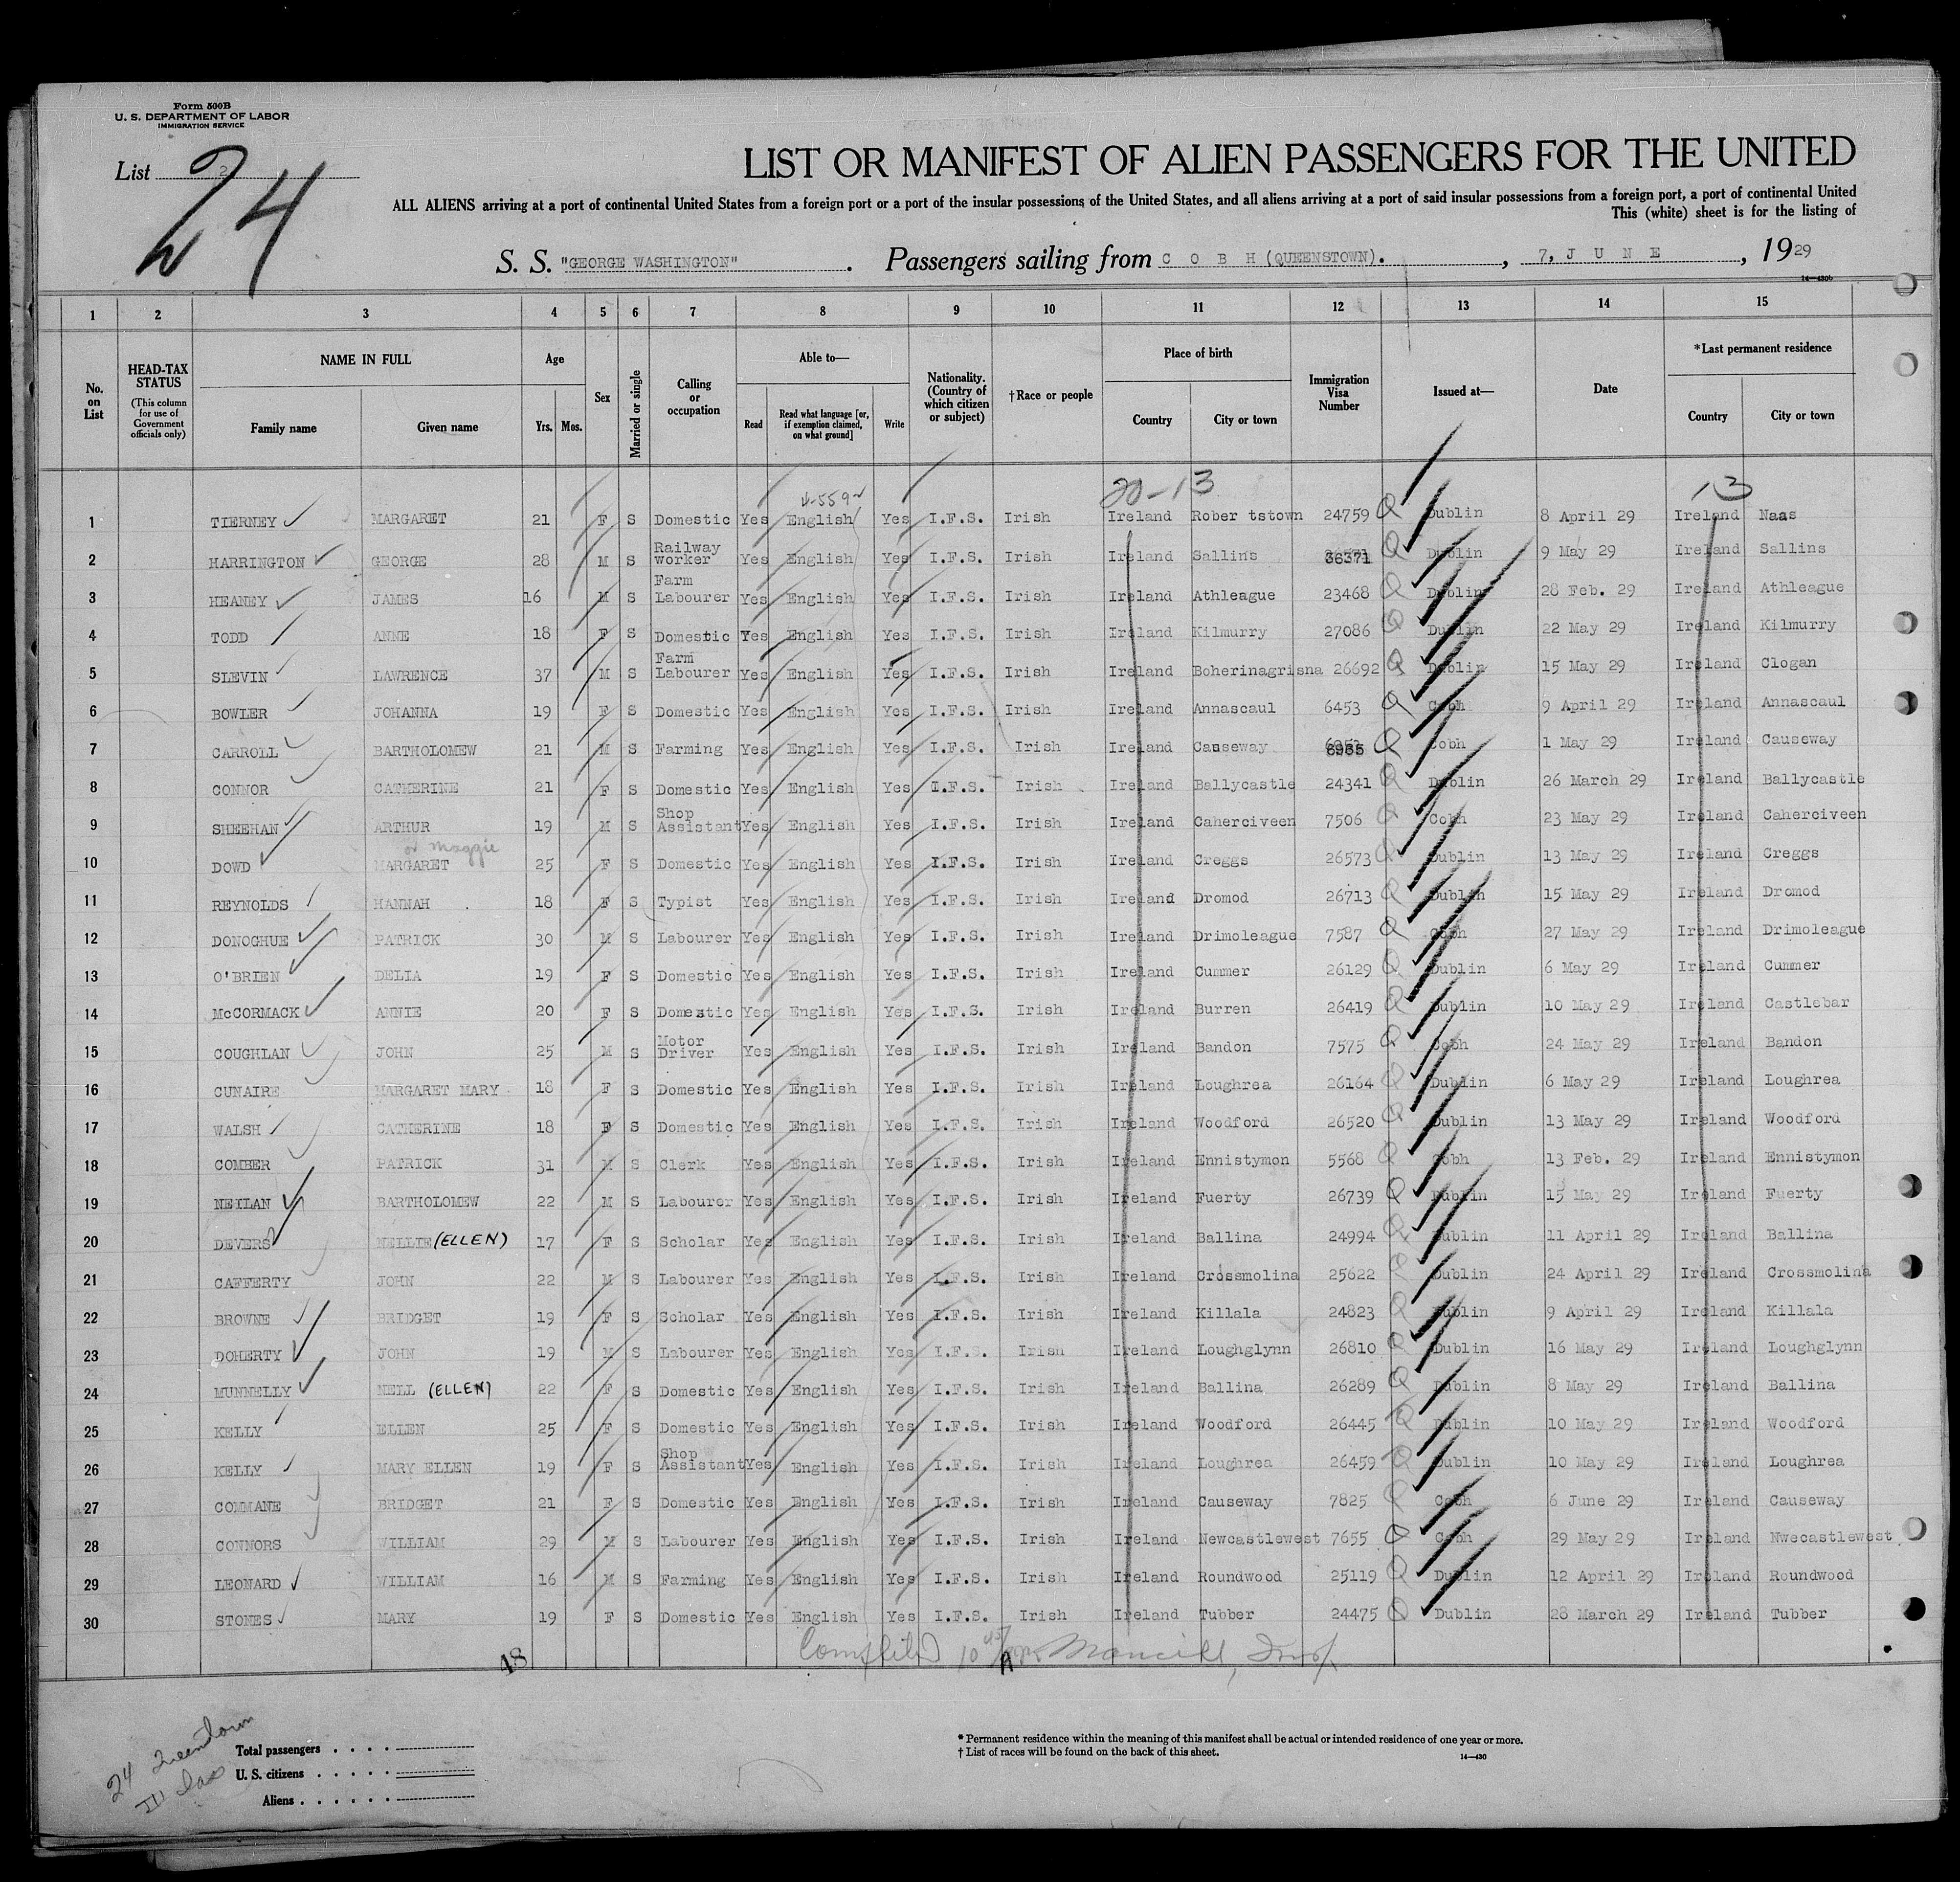 Form 500B
U. S. DEPARTMENT OF LABOR
IMMIGRATION SERVICE
List 2
24
LIST OR MANIFEST OF ALIEN PASSENGERS FOR THE UNITED
ALL ALIENS arriving at a port of continental United States from a foreign port or a port of the insular possessions of the United States, and all aliens arriving at a port of said insular possessions from a foreign port, a port of continental United
This (white) sheet is for the listing of
S. S. "GEORGE WASHINGTON" . Passengers sailing from C O B H (QUEENSTOWN). , 7, J U N E , 1929
14—430b
1 2 3 4 5 6 7 8 9 10 11 12 13 14 15
No. on List
HEAD-TAX STATUS (This column for use of Government officials only)
NAME IN FULL Family name Given name
Age Yrs. Mos.
Sex
Married or single
Calling or occupation
Able to— Read Read what language [or, if exemption claimed, on what ground] Write
Nationality. (Country of which citizen or subject)
†Race or people
Place of birth Country City or town
Immigration Visa Number
Issued at—
Date
*Last permanent residence Country City or town
4-559 20-13 13
1 TIERNEY MARGARET 21 F S Domestic Yes English Yes I.F.S. Irish Ireland Rober tstown 24759 Q Dublin 8 April 29 Ireland Naas
2 HARRINGTON GEORGE 28 M S Railway worker Yes English Yes I.F.S. Irish Ireland Sallins 36371 Q Dublin 9 May 29 Ireland Sallins
3 HEANEY JAMES 16 M S Farm Labourer Yes English Yes I.F.S. Irish Ireland Athleague 23468 Q Dublin 28 Feb. 29 Ireland Athleague
4 TODD ANNE 18 F S Domestic Yes English Yes I.F.S. Irish Ireland Kilmurry 27086 Q Dublin 22 May 29 Ireland Kilmurry
5 SLEVIN LAWRENCE 37 M S Farm Labourer Yes English Yes I.F.S. Irish Ireland Boherinagrisna 26692 Q Dublin 15 May 29 Ireland Clogan
6 BOWLER JOHANNA 19 F S Domestic Yes English Yes I.F.S. Irish Ireland Annascaul 6453 Q Cobh 9 April 29 Ireland Annascaul
7 CARROLL BARTHOLOMEW 21 M S Farming Yes English Yes I.F.S. Irish Ireland Causeway Q Cobh 1 May 29 Ireland Causeway
8 CONNOR CATHERINE 21 F S Domestic Yes English Yes I.F.S. Irish Ireland Ballycastle 24341 Q Dublin 26 March 29 Ireland Ballycastle
9 SHEEHAN ARTHUR 19 M S Shop Assistant Yes English Yes I.F.S. Irish Ireland Caherciveen 7506 Q Cobh 23 May 29 Ireland Caherciveen
or Maggie
10 DOWD MARGARET 25 F S Domestic Yes English Yes I.F.S. Irish Ireland Creggs 26573 Q Dublin 13 May 29 Ireland Creggs
11 REYNOLDS HANNAH 18 F S Typist Yes English Yes I.F.S. Irish Ireland Dromod 26713 Q Dublin 15 May 29 Ireland Dromod
12 DONOGHUE PATRICK 30 M S Labourer Yes English Yes I.F.S. Irish Ireland Drimoleague 7587 Q Cobh 27 May 29 Ireland Drimoleague
13 O'BRIEN DELIA 19 F S Domestic Yes English Yes I.F.S. Irish Ireland Cummer 26129 Q Dublin 6 May 29 Ireland Cummer
14 McCORMACK ANNIE 20 F S Domestic Yes English Yes I.F.S. Irish Ireland Burren 26419 Q Dublin 10 May 29 Ireland Castlebar
15 COUGHLAN JOHN 25 M S Motor Driver Yes English Yes I.F.S. Irish Ireland Bandon 7575 Q Cobh 24 May 29 Ireland Bandon
16 CUNAIRE MARGARET MARY 18 F S Domestic Yes English Yes I.F.S. Irish Ireland Loughrea 26164 Q Dublin 6 May 29 Ireland Loughrea
17 WALSH CATHERINE 18 F S Domestic Yes English Yes I.F.S. Irish Ireland Woodford 26520 Q Dublin 13 May 29 Ireland Woodford
18 COMBER PATRICK 31 M S Clerk Yes English Yes I.F.S. Irish Ireland Ennistymon 5568 Q Cobh 13 Feb. 29 Ireland Ennistymon
19 NEILAN BARTHOLOMEW 22 M S Labourer Yes English Yes I.F.S. Irish Ireland Fuerty 26739 Q Dublin 15 May 29 Ireland Fuerty
20 DEVERS NELLIE (ELLEN) 17 F S Scholar Yes English Yes I.F.S. Irish Ireland Ballina 24994 Q Dublin 11 April 29 Ireland Ballina
21 CAFFERTY JOHN 22 M S Labourer Yes English Yes I.F.S. Irish Ireland Crossmolina 25622 Q Dublin 24 April 29 Ireland Crossmolina
22 BROWNE BRIDGET 19 F S Scholar Yes English Yes I.F.S. Irish Ireland Killala 24823 Q Dublin 9 April 29 Ireland Killala
23 DOHERTY JOHN 19 M S Labourer Yes English Yes I.F.S. Irish Ireland Loughglynn 26810 Q Dublin 16 May 29 Ireland Loughglynn
24 MUNNELLY NELL (ELLEN) 22 F S Domestic Yes English Yes I.F.S. Irish Ireland Ballina 26289 Q Dublin 8 May 29 Ireland Ballina
25 KELLY ELLEN 25 F S Domestic Yes English Yes I.F.S. Irish Ireland Woodford 26445 Q Dublin 10 May 29 Ireland Woodford
26 KELLY MARY ELLEN 19 F S Shop Assistant Yes English Yes I.F.S. Irish Ireland Loughrea 26459 Q Dublin 10 May 29 Ireland Loughrea
27 COMMANE BRIDGET 21 F S Domestic Yes English Yes I.F.S. Irish Ireland Causeway 7825 Q Cobh 6 June 29 Ireland Causeway
28 CONNORS WILLIAM 29 M S Labourer Yes English Yes I.F.S. Irish Ireland Newcastlewest 7655 Q Cobh 29 May 29 Ireland Nwecastlewest
29 LEONARD WILLIAM 16 M S Farming Yes English Yes I.F.S. Irish Ireland Roundwood 25119 Q Dublin 12 April 29 Ireland Roundwood
30 STONES MARY 19 F S Domestic Yes English Yes I.F.S. Irish Ireland Tubber 24475 Q Dublin 28 March 29 Ireland Tubber
18
24
III
Total passengers
U. S. citizens
Aliens
* Permanent residence within the meaning of this manifest shall be actual or intended residence of one year or more.
† List of races will be found on the back of this sheet.
14—430